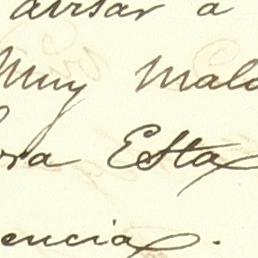 avisar a
Muy mala
ora Esta
encia.